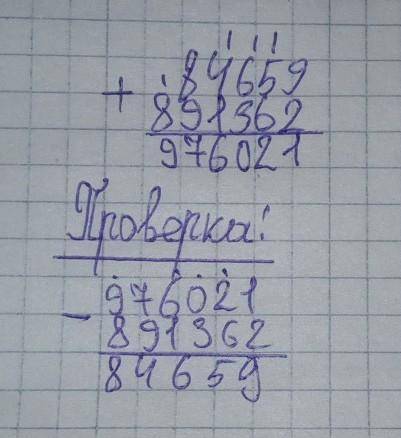 + 84659
891362
976021
Проверка:
- 976021
891362
84659